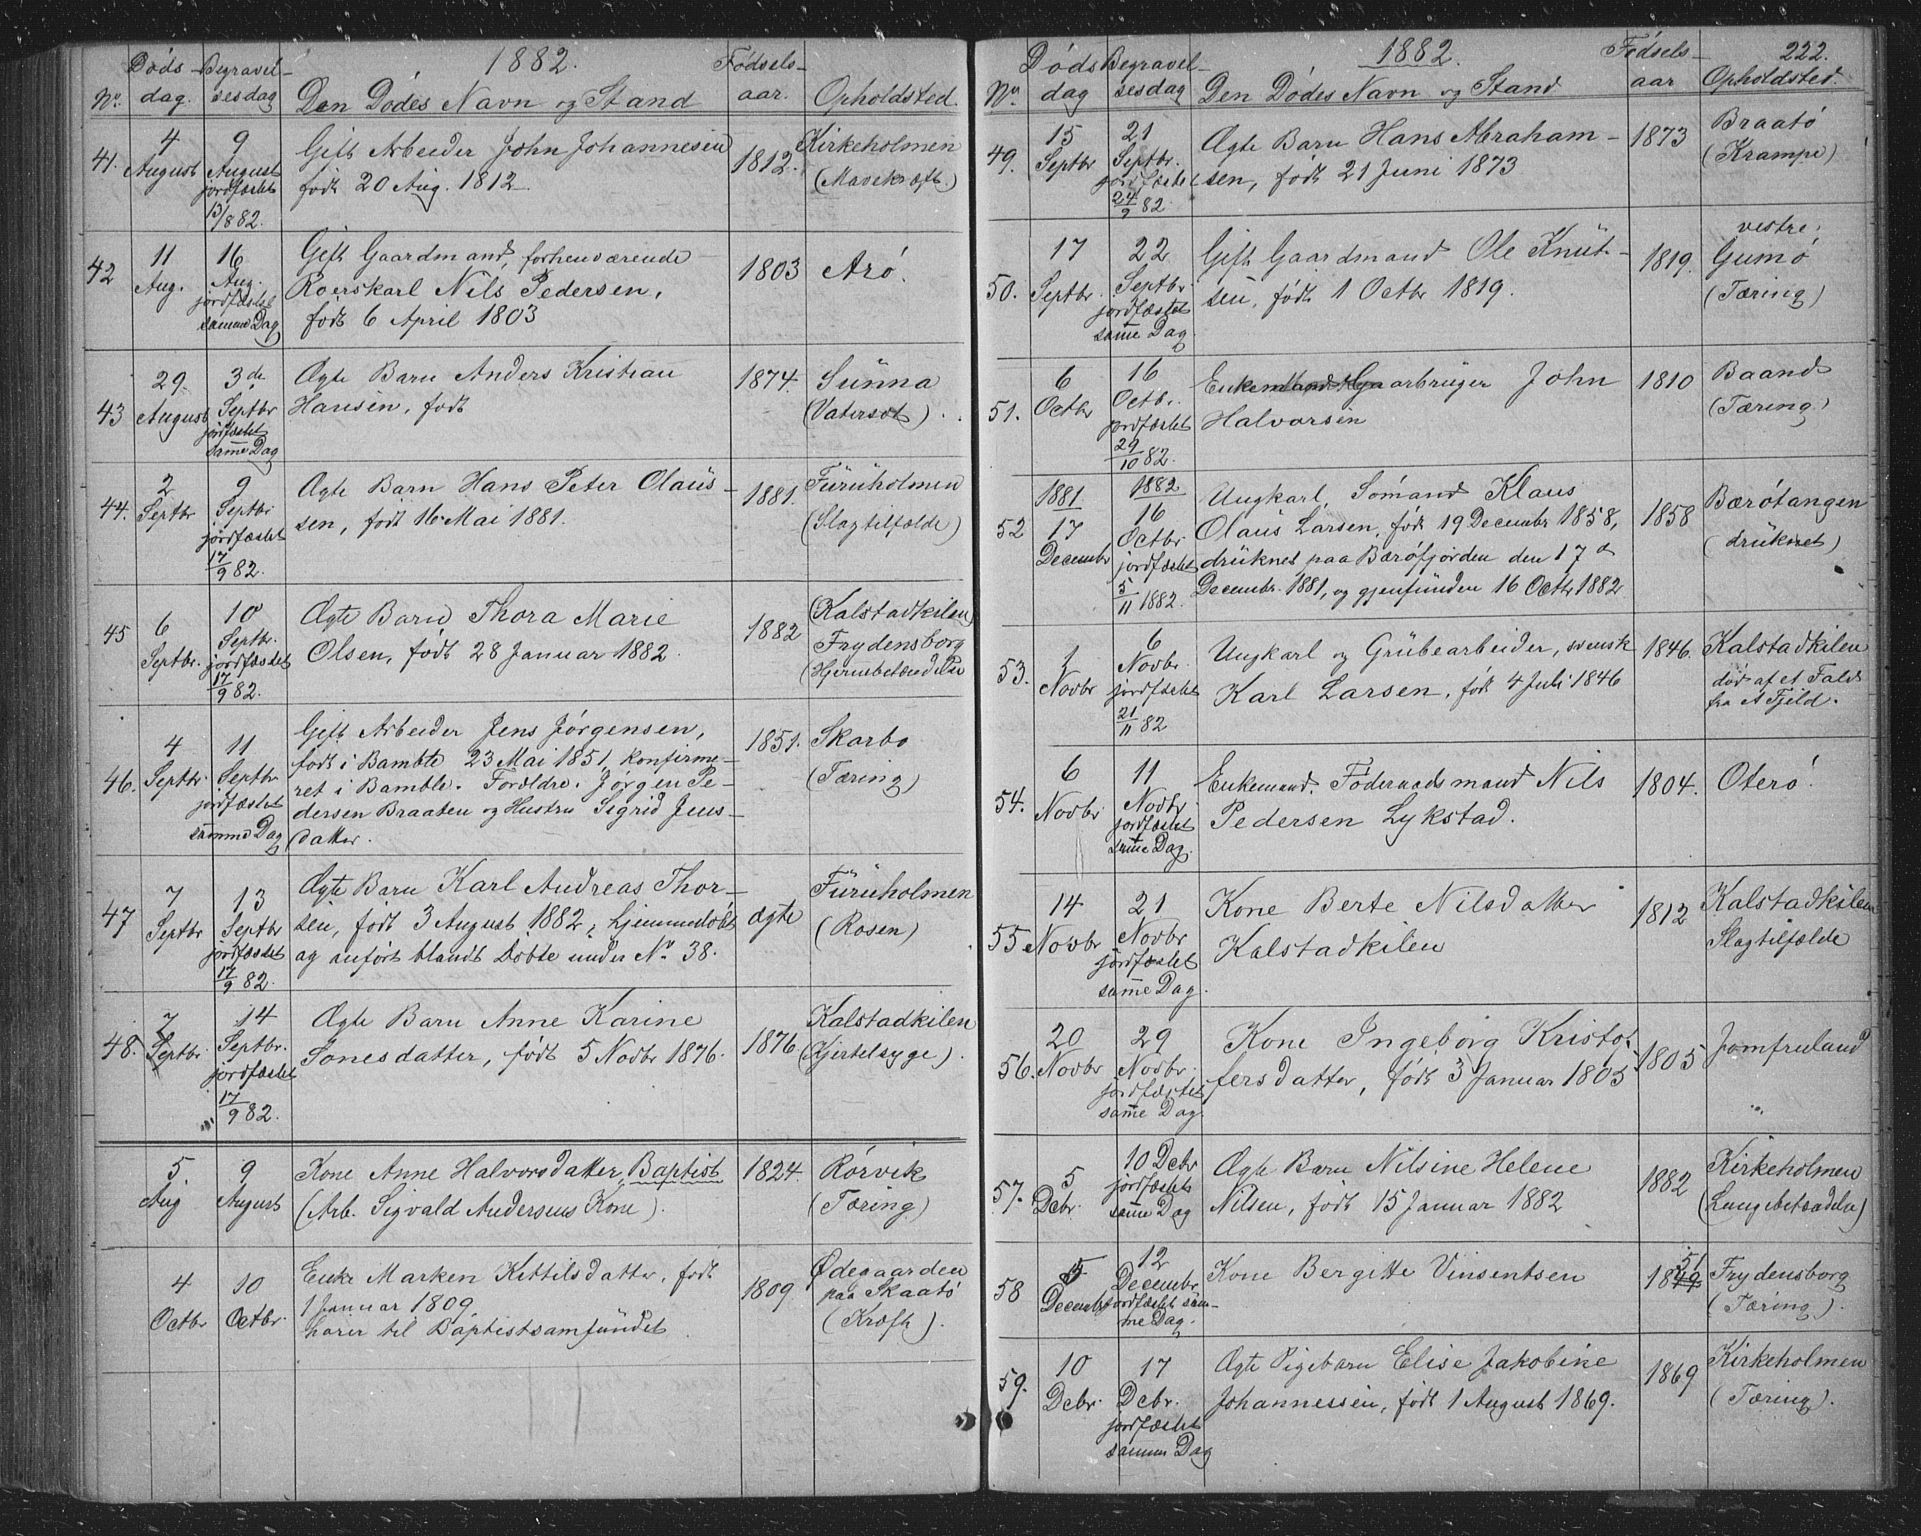 1882.
Døds- Begravel- Fødsels-
No. dag. sesdag Den Dødes Navn og Stand aar. Opholdsted.
41. 4 August 9 August jordfæstet 13/8 82. Gift Arbeider John Johannesen 1812. Kirkeholmen
født 20 Aug. 1812 (Mavekræft.)
42 11 Aug. 16 Aug. jordfæstet samme Dag Gift Gaardmand, forhenværende 1803 Arø.
Roerskarl Nils Pedersen,
født 6 April 1803
43 29. August 3de Septbr jordfæstet samme Dag Ægte Barn Anders Kristian 1874 Sünna
Hansen, født (Vatersot).
44. 2 Septbr 9 Septbr jordfæstet 17/9 82. Ægte Barn Hans Peter Olaüs- 1881. Fürüholmen
sen, født 16 Mai 1881. (Slagtilfælde)
45 6 Septbr. 10 Septbr. jordfæstet 17/9 82. Ægte Barn Thora Marie 1882 (Kalstadkilen)
Olsen, født 28 Januar 1882. Frydensborg
(Hjernebetændelse
46. 4 Septbr. 11 Septbr jordfæstet samme Dag Gift Arbeider Jens Jørgensen, 1851. Skarbo
født i Bamble 23 Mai 1851, konfirme- (Tæring)
ret i Bamble. Forældre: Jørgen Pe-
dersen Braaten og Hustru Sigrid Jens-
datter.
47 7 Septbr 13 Septbr jordfæstet 17/9 82. Ægte Barn Karl Andreas Thor- ægte Fürüholmen
sen, født 3 August 1882, hjemmedøbt (Rosen)
og anført blandt Døbte under No. 38.
48. 7 Septbr. 14 Septbr. jordfæstet 17/9 82. Ægte Barn Anne Karine 1876 Kalstadkilen
Sonesdatter, født 5 Novbr 1876. (Kjertelsyge).
5 Aug 9 August Kone Anne Halvorsdatter, Baptist 1824. Rörvik
(Arb. Sigvald Andersens Kone). (Tæring)
4 Octbr 10 Octbr. Enke Marken Kittilsdatter, født 1809 Ødegaarden
1 Januar 1809, paa Skaatø
hører til Baptistsamfündet. (Kræft).
1882. 222.
Døds Begravel- Fødsels-
No. dag sesdag Den Dødes Navn og Stand aar Opholdsted.
49. 15 Septbr 21 Septbr. jordfæstet 24/9 82. Ægte Barn Hans Abraham- 1873 Braatø
sen, født 21 Juni 1873 (Krampe)
50. 17 Septbr. 22 Septbr. jordfæstet samme Dag. Gift Gaardmand Ole Knüt- 1819. vestre
sen, født 1 Octbr 1819. Gumø
(Tæring)
51. 6 Octbr 16 Octbr. jordfæstet 29/10 82. Enkemand Gaarbruger John 1810 Baand
Halvorsen (Tæring)
52 1881 17 Decembr 1882 16 Octbr jordfæstet 5/11 1882. Ungkarl, Sømand Klaus 1858 Bærøtangen
Olaüs Larsen, født 19 Decembr 1858, (drüknet)
drüknet paa Bærøfjorden den 17 d
Decembr. 1881, og gjenfunden 16 Octbr 1882
53. 1 Novbr 6 Novbr. jordfæstet 21/11 82 Ungkarl og Grübearbeider, svensk 1846. Kalstadkilen
Karl Larsen, født 4 Juli 1846 død af et Fald
fra et Fjeld.
54. 6 Novbr. 11 Novbr. jordfæstet samme Dag. Enkemand. Føderaadsmand Nils 1804. Oterø.
Pedersen Lykstad.
55 14 Novbr 21 Novbr jordfæstet samme Dag. Kone Berte Nilsdatter 1812 Kalstadkilen
Kalstadkilen Slagtilfælde
56. 20 Novbr 29 Novbr. jordfæstet samme Dag. Kone Ingeborg Kristof- 1805 Jomfruland
fersdatter, født 3 Januar 1805
57. 5 Dcbr. 10 Dcbr jordfæstet samme Dag Ægte Barn Nilsine Helene 1882 Kirkeholmen
Nilsen, født 15 Januar 1882 (Lungebetændelse)
58 5 Decembr 12 Decembr. jordfæstet sam-me Dag. Kone Bergitte Vinsentsen 1849 51 Frydensborg
(Tæring).
59. 10 Dcbr. 17 Dcbr. jordfæstet samme Dag Ægte Pigebarn Elise Jakobine 1869 Kirkeholmen
Johannessen, født 1 August 1869. (Tæring).